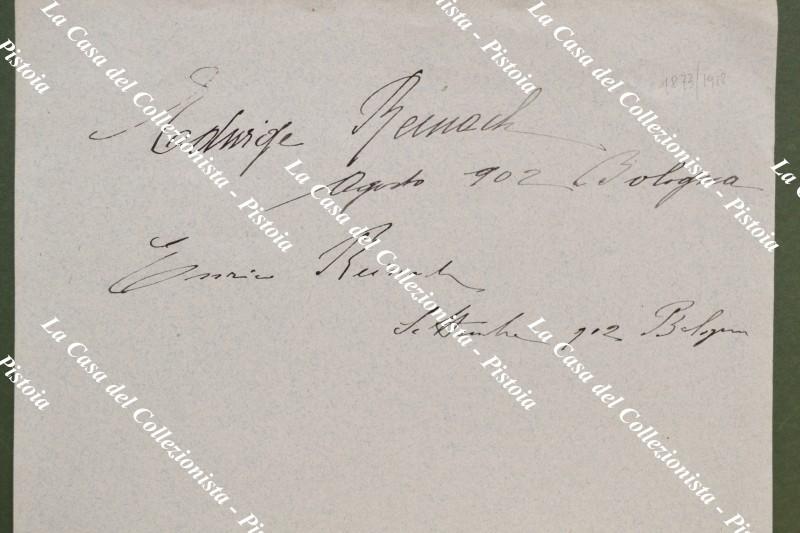 1873/1918
Edwige Reinach
Agosto 902 Bologna
Enrico Reinach
Settembre 902 Bologna
La Casa del Collezionista - Pistoia
La Casa del Collezionista - Pistoia
La Casa del Collezionista - Pistoia
La Casa del Collezionista - Pistoia
La Casa del Collezionista - Pistoia
La Casa del Collezionista - Pistoia